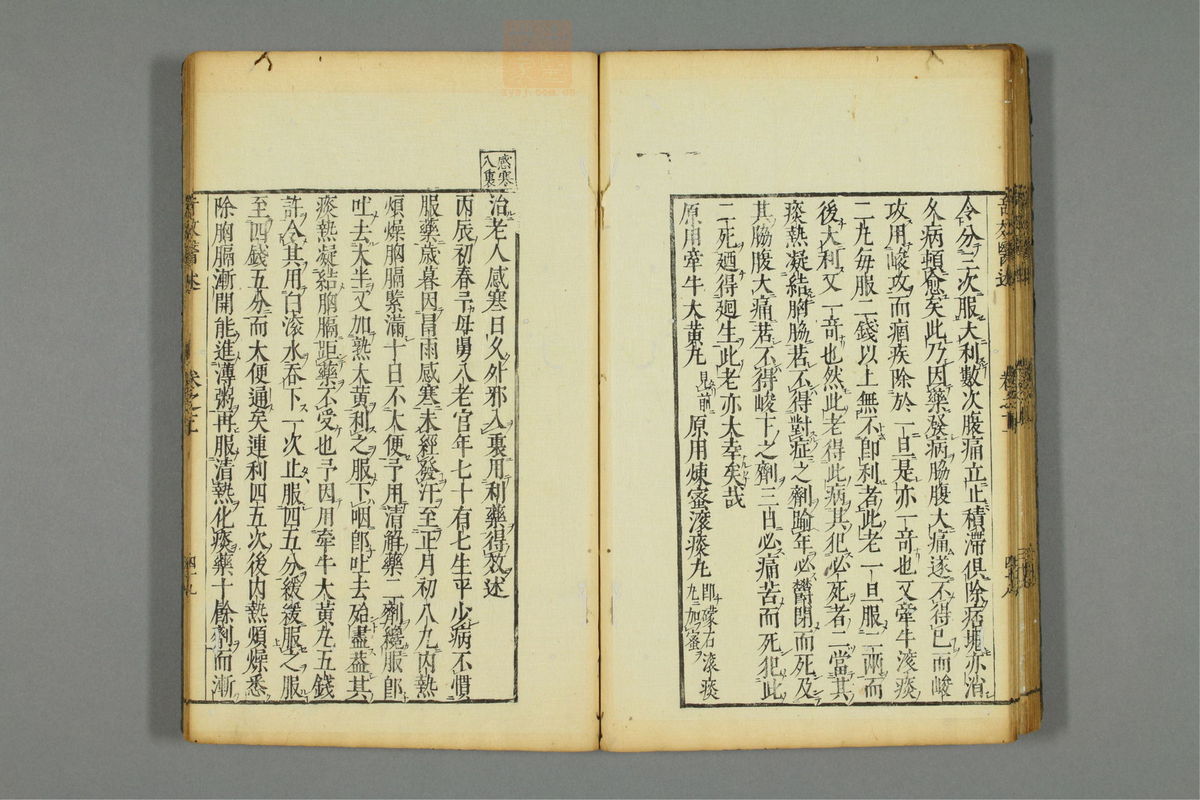 令分二次服大利數次腹痛立止積滯俱除痞塊亦消
久病頓愈矣此乃因藥發病脇腹大痛遂不得已而峻
攻用峻攻而痼疾除於一旦是亦一奇也又牽牛滚痰
二丸每服二錢以上無不卽利者此老一旦服二兩而
後大利又一奇也然此老得此病其犯必死者二當其
痰熱凝結胸脇若不得對症之劑踰年必鬱閉而死及
其脇腹大痛若不得峻下之劑三日必痛苦而死犯此
二死廼得廻生此老亦大幸矣哉
原用牽牛大黃丸 見前 原用煉蜜滚痰丸 即礞石滚痰
丸ニ加蜜ヲ
感寒
入裏
治老人感寒日久外邪入裏用利藥得效述
丙辰初春予母舅八老官年七十有七生平少病不慣
服藥歲暮因冒雨感寒未經發汗至正月初八九內熱
煩燥胸膈緊滿十日不大便予用清解藥二劑纔服卽
吐去大半又加熟大黃利之服下咽卽吐去殆盡蓋其
痰熱凝結胸膈距藥不受也予因用牽牛大黃丸五錢
許令其用白滚水吞下一次止服四五分緩緩服之服
至四錢五分而大便通矣連利四五次後內熱煩燥悉
除胸膈漸開能進薄粥再服清熱化痰藥十餘劑而漸
奇效醫述
卷之二
四十九